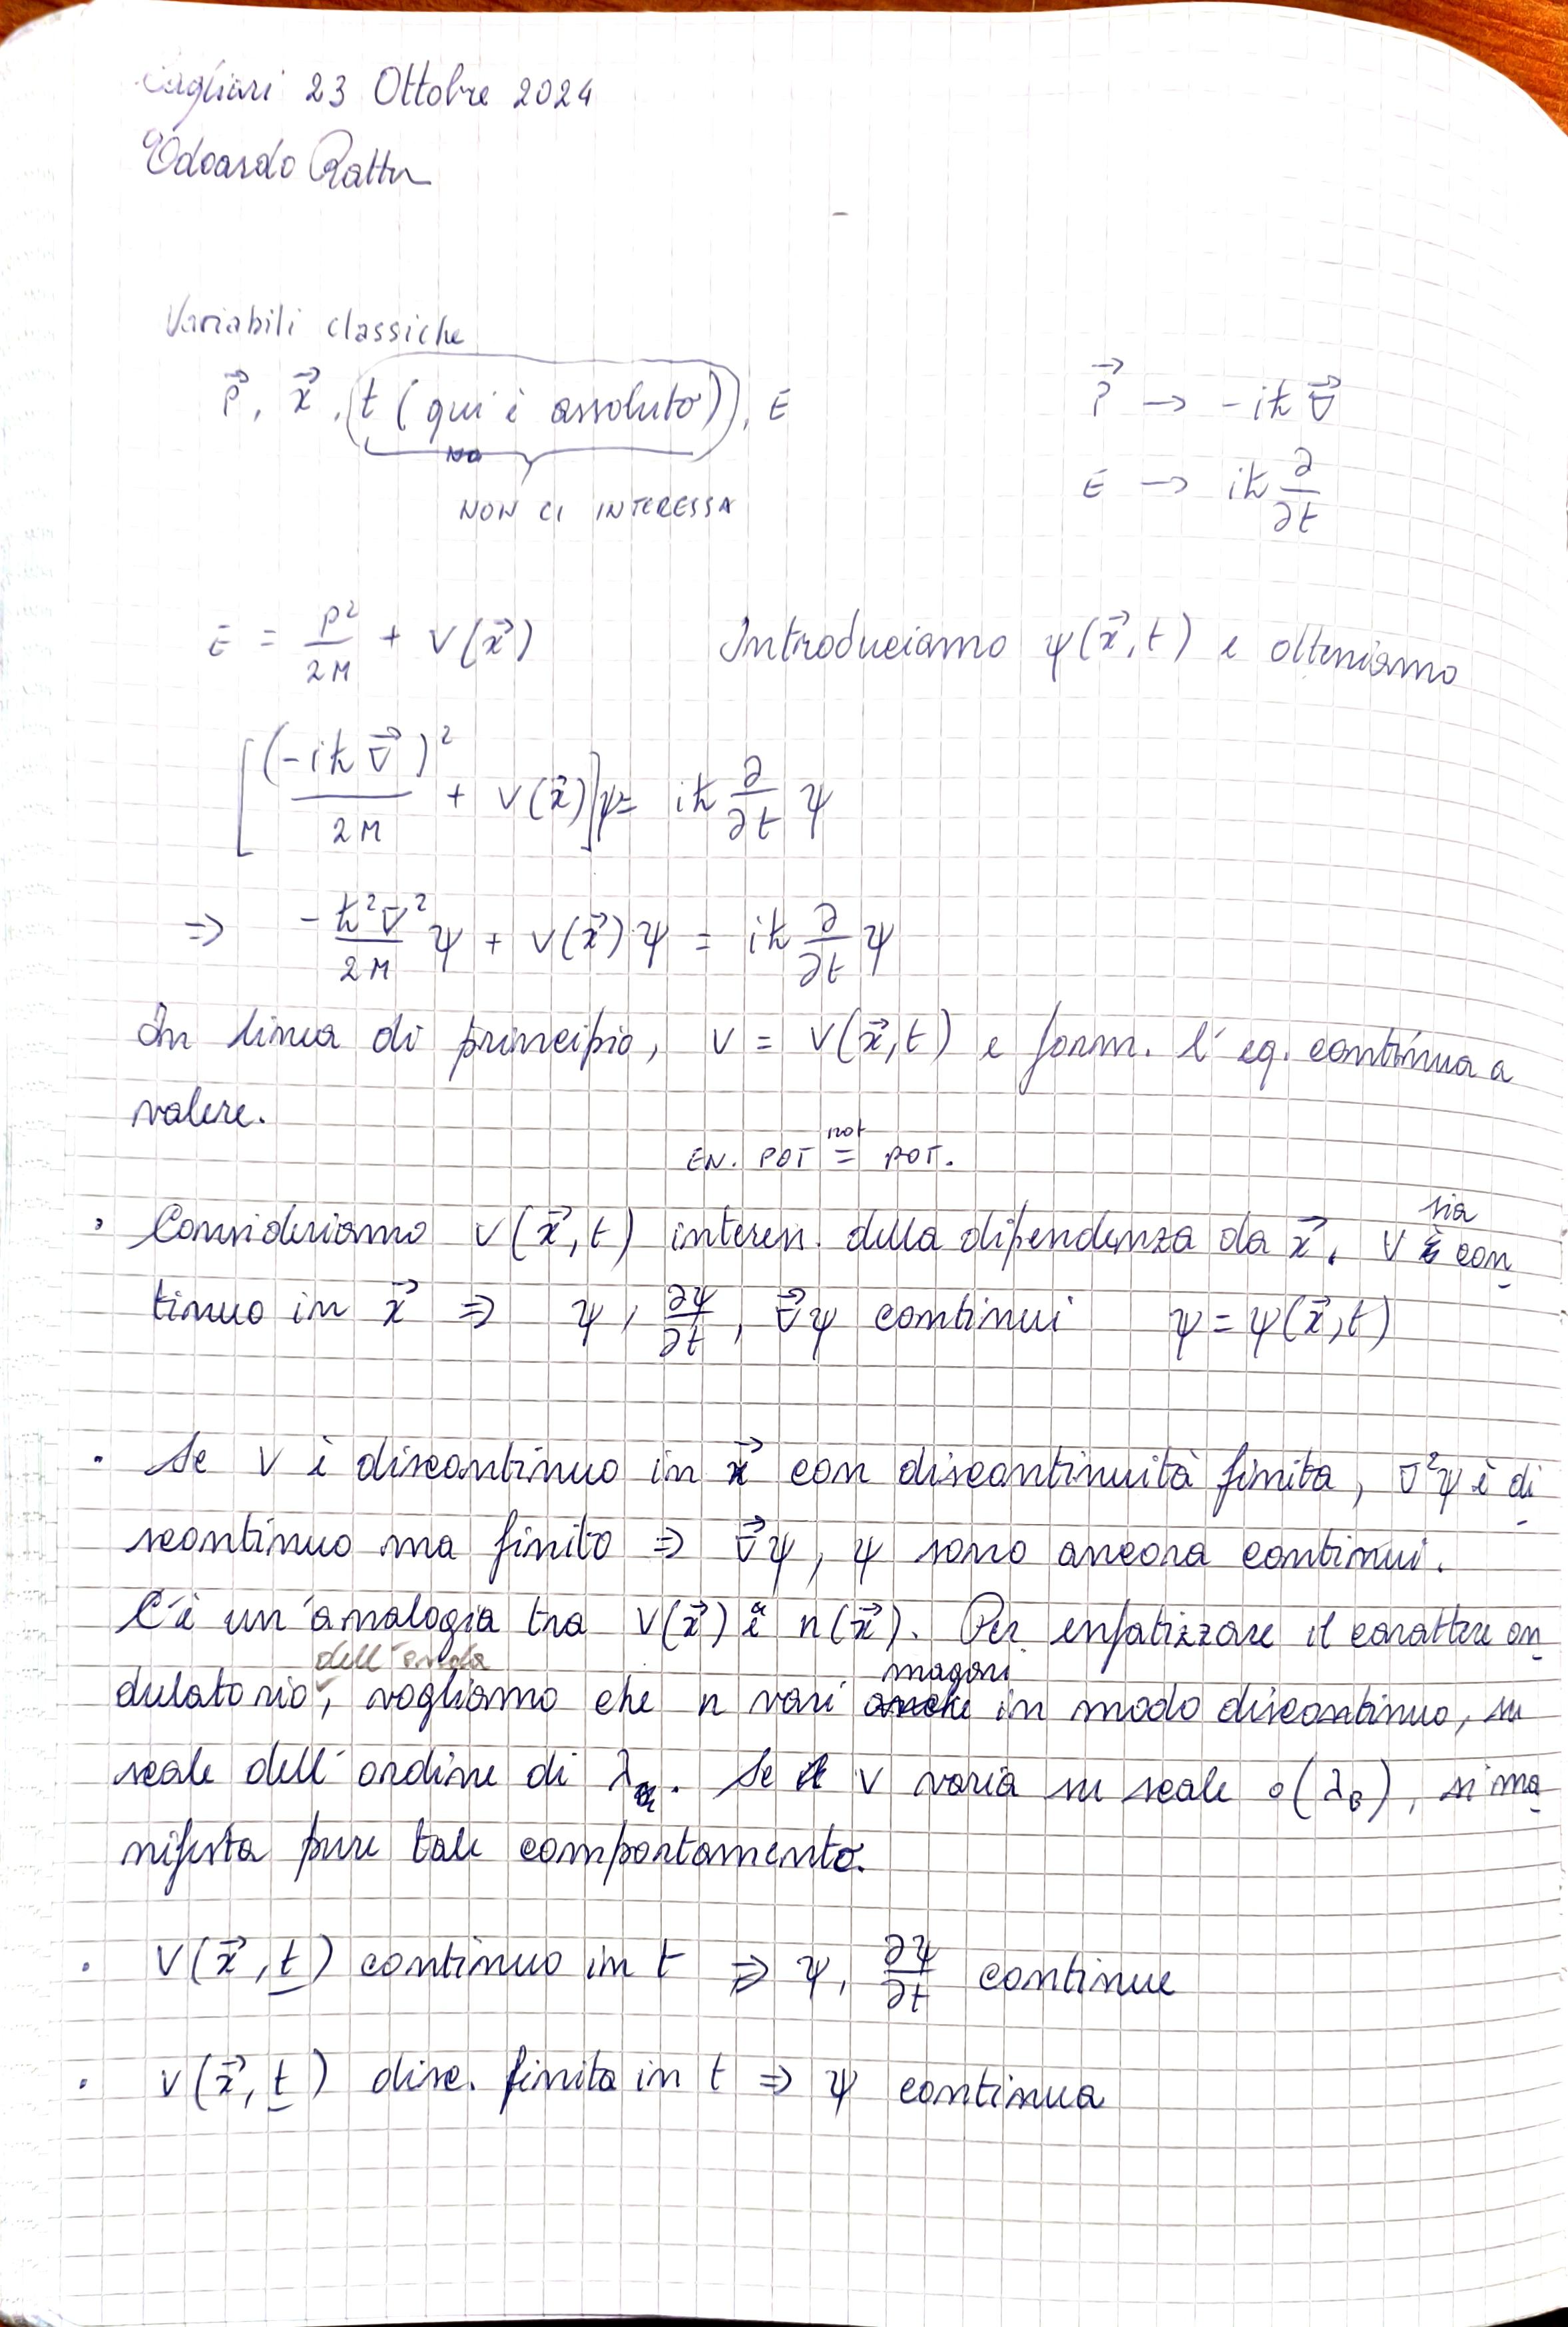 Cagliari 23 Ottobre 2024
Edoardo Rattu
Variabili classiche
p⃗, x⃗, t (qui è assoluto), E
NON CI INTERESSA
p⃗ → -iħ ∇⃗
E → iħ ∂/∂t
E = p²/2M + V(x⃗) Introduciamo ψ(x⃗,t) e otteniamo
[(-iħ ∇⃗)²/2M + V(x⃗)]ψ = iħ ∂/∂t ψ
⇒ -ħ²∇²/2M ψ + V(x⃗) ψ = iħ ∂/∂t ψ
In linea di principio, V = V(x⃗,t) e form. l'eq. continua a
valere.
EN. POT not= POT.
• Consideriamo V(x⃗,t) interess. della dipendenza da x⃗. V sia con
tinuo in x⃗ ⇒ ψ, ∂ψ/∂t, ∇⃗ψ continui ψ = ψ(x⃗,t)
• Se V è discontinuo in x⃗ con discontinuità finita, ∇²ψ è di
scontinuo ma finito ⇒ ∇⃗ψ, ψ sono ancora continui.
C'è un'analogia tra V(x⃗) e n(x⃗). Per enfatizzare il carattere on
dulatorio dell'onda, vogliamo che n vari magari in modo discontinuo, su
scale dell'ordine di λ. Se V varia su scale o(λ_B), si ma
nifesta pure tale comportamento.
• V(x⃗,t) continuo in t ⇒ ψ, ∂ψ/∂t continue
• V(x⃗,t) disc. finita in t ⇒ ψ continua